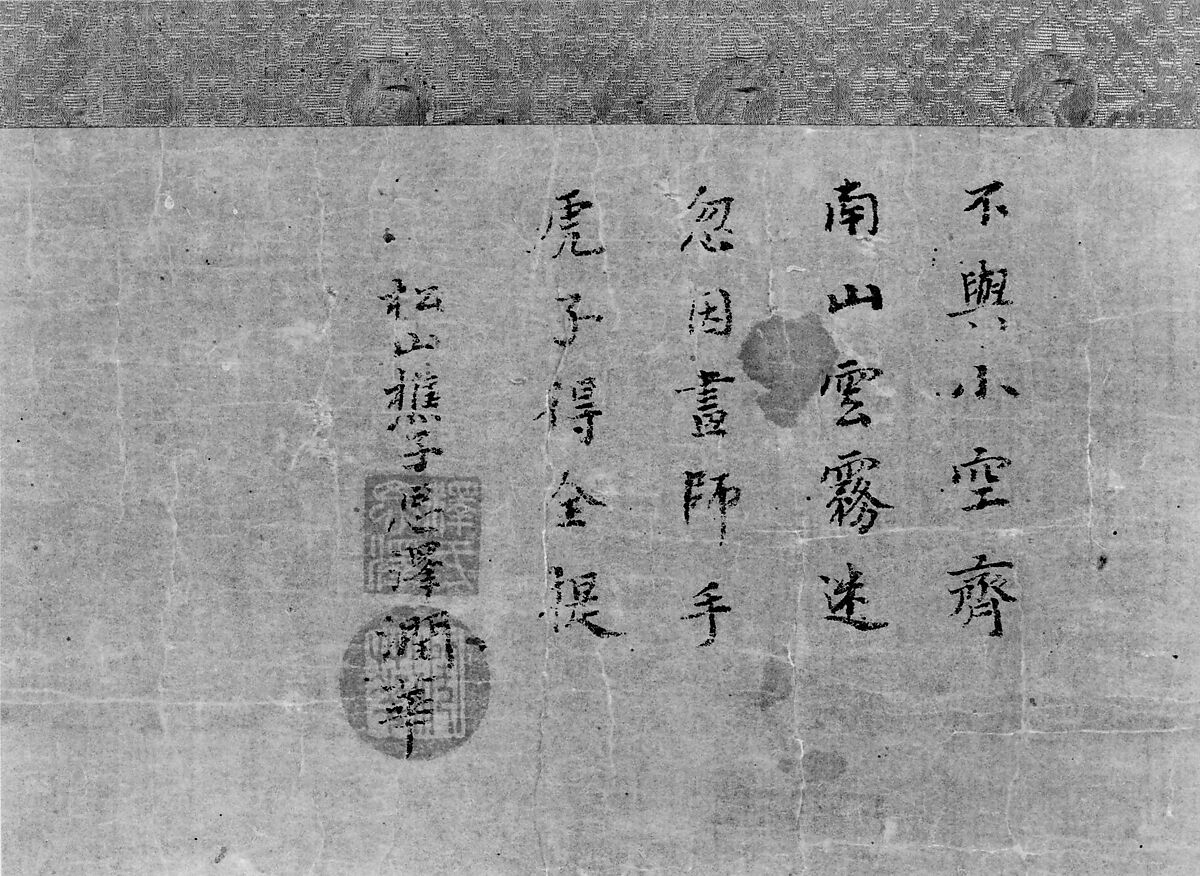 不與小空齊
南山雲霧迷
忽因畫師手
虎子得全提
松山樵子恩澤潤華